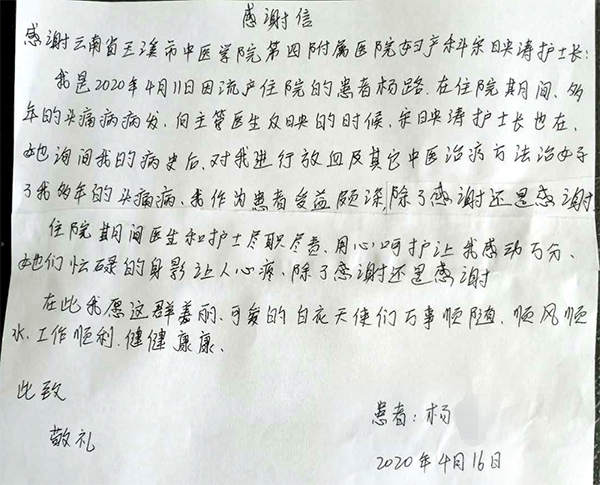 感谢信
感谢云南省玉溪市中医学院第四附属医院妇产科宗映涛护士长:
我是2020年4月11日因流产住院的患者杨路.在住院其月间、多
年的头痛病病发、向主管医生反映的时候、宗映涛护士长也在、
她询问我的病史后、对我进行放血及其它中医治病方法治好
了我多年的头痛病、我作为患者受益颇深,除了感谢还是感谢
住院其月间医生和护士尽职尽责、用心呵护让我感动万分、
她们忙碌的身影让人心疼、除了感谢还是感谢
在此我愿这群美丽、可爱的白衣天使们万事顺随、顺风顺
水、工作顺利、健健康康、
此致
敬礼
患者:杨
2020年4月16日